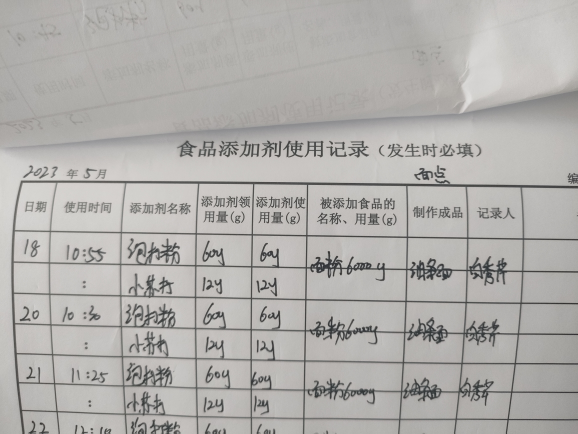 食品添加剂使用记录（发生时必填）
2023 年 5 月 面点 编
日期 使用时间 添加剂名称 添加剂领用量(g) 添加剂使用量(g) 被添加食品的名称、用量(g) 制作成品 记录人
18 10:55 泡打粉 60g 60g 面粉6000g 油条面
: 小苏打 12g 12g
20 10:30 泡打粉 60g 60g 面粉6000g 油条面
: 小苏打 12g 12g
21 11:25 泡打粉 60g 60g 面粉6000g 油条面
: 小苏打 12g 12g
22 泡打粉 60g 60g